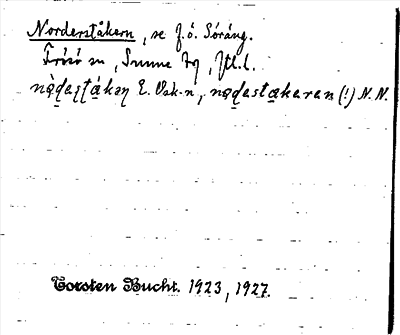 Norderståkern, se f.ö. Söräng.
Frösö sn, Sunne tg, Jtl.l.
nǫ̀dɐʂtákəɳ E. Vsk-n, nǫdɐstakaran (!) N.N.
Torsten Bucht. 1923, 1927.